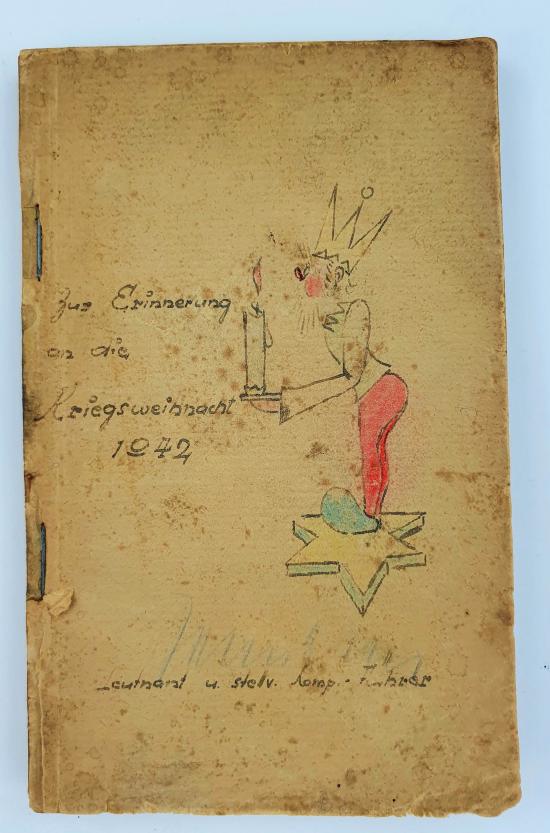 Zur Erinnerung
an die
Kriegsweihnacht
1942
Leutnant u. stelv. Komp.-Führer